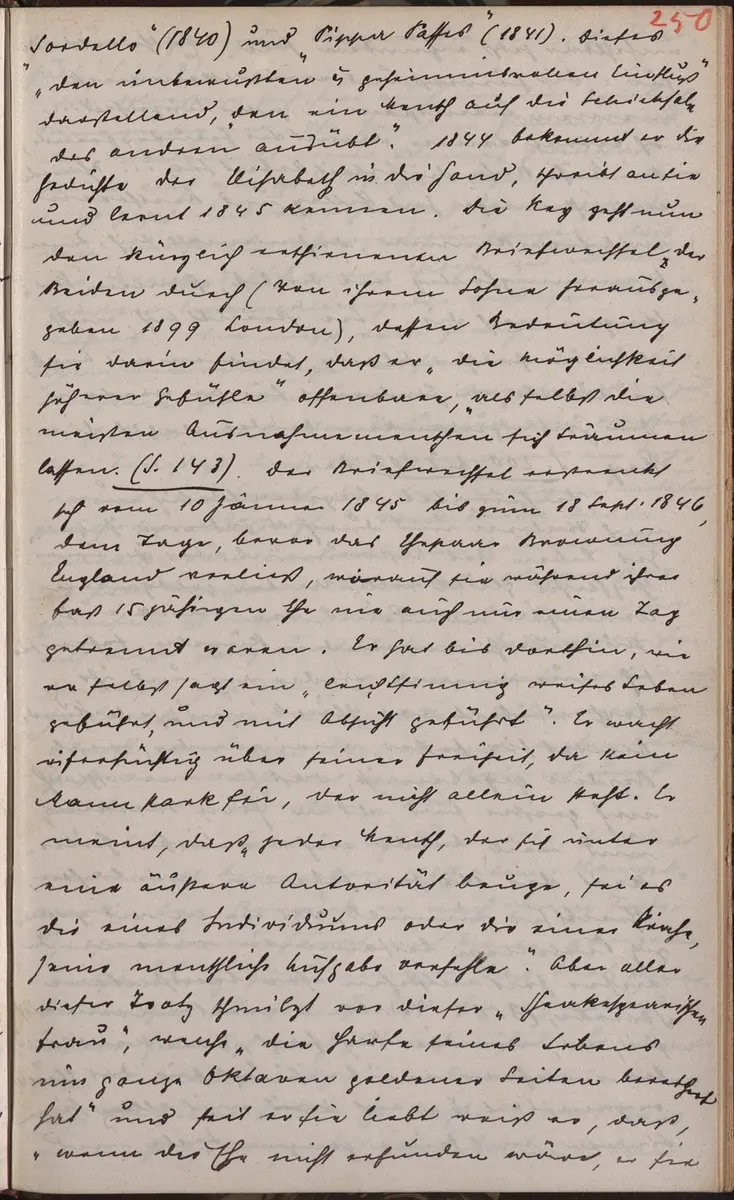 250
"Sordello" (1840) und "Pippa Passes" (1841). Dieses
"den unbewußten u geheimnisvollen Einfluß"
darstellend, "den ein Mensch auf die Schicksale
des andern ausübt". 1844 bekommt er die
Gedichte der Elisabeth in die Hand, schreibt an sie
und lernt 1845 kennen. Die Key geht nun
den kürzlich erschienenen Briefwechsel der
Beiden durch (von ihrem Sohne herausge-
geben 1899 London), dessen Bedeutung
sie darin findet, daß er "die Möglichkeit
höherer Gefühle" offenbare, "als selbst die
meisten Ausnahmemenschen sich träumen
lassen. (S. 143). Der Briefwechsel erstreckt
sich vom 10 Jänner 1845 bis zum 18 Sept. 1846,
dem Tage, bevor das Ehepaar Browning
England verließ, worauf sie während ihrer
fast 15 jährigen Ehe nie auch nur einen Tag
getrennt waren. Er hat bis dorthin, wie
er selbst sagt ein "leichtsinnig weises Leben
geführt, und mit Absicht geführt". Er wacht
eifersüchtig über seiner Freiheit, da kein
Mann stark sei, der nicht allein steht. Er
meint, daß "jeder Mensch, der sich unter
eine äußere Autorität beuge, sei es
die eines Individuums oder die einer Kirche,
seine menschliche Aufgabe verfehle". Aber aller
dieser Trotz schmilzt vor dieser "Shakespearischen
Frau", welche "die Harfe seines Lebens
um ganze Oktaven goldener Seiten bereichert
hat" und seit er sie liebt weiß er, daß,
"wenn die Ehe nicht erfunden wäre, er sie